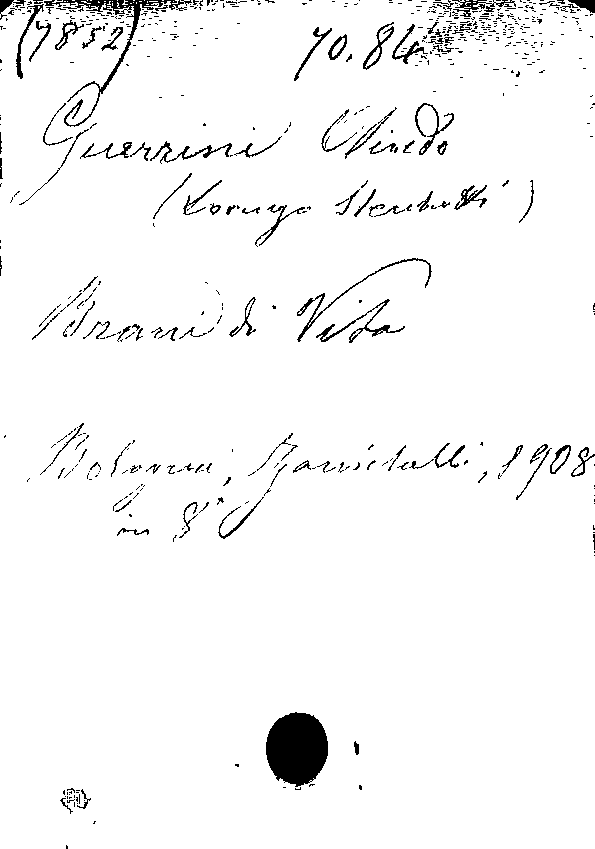 (7852) 70.84
Guerrini Olindo
(Lorenzo Stecchetti)
Brani di Vita
Bologna, Zanichelli, 1908
in 8°